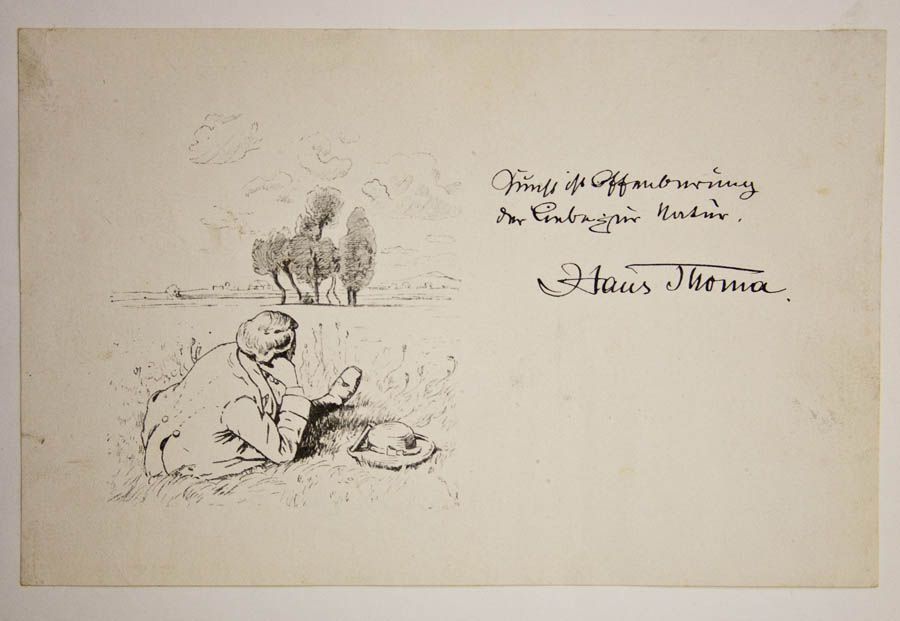 Kunst ist Offenbarung
der Liebe zur Natur.
Hans Thoma.